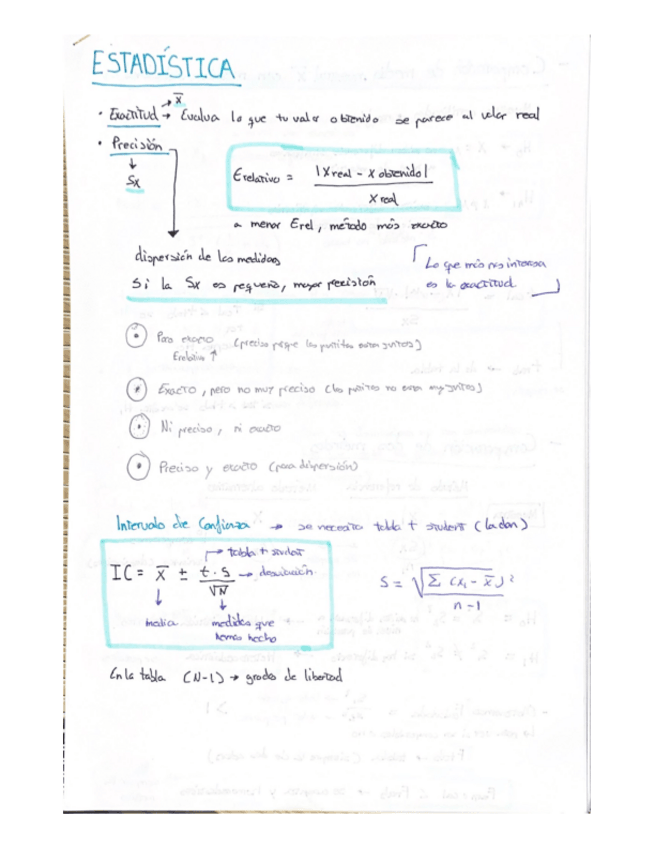 ESTADÍSTICA
x̄
· Exactitud → Evalua lo que tu valor obtenido se parece al valor real
· Precisión
↓
Sx
Erelativo = |Xreal - Xobtenido| / Xreal
a menor Erel, método más exacto
dispersión de las medidas
Si la Sx es pequeña, mayor precisión
Lo que más nos interesa
es la exactitud
Poro exacto (preciso porque los puntitos estan juntos)
Erelativo ↑
Exacto, pero no muy preciso (los puntitos no estan muy juntos)
Ni preciso, ni exacto
Preciso y exacto (poca dispersión)
Intervalo de Confianza → se necesita tabla t student (la dan)
tabla t student
IC = x̄ ± t · S / √N → desviación
media
medidas que
hemos hecho
S = √ Σ (xi - x̄)² / n-1
En la tabla (N-1) → grados de libertad